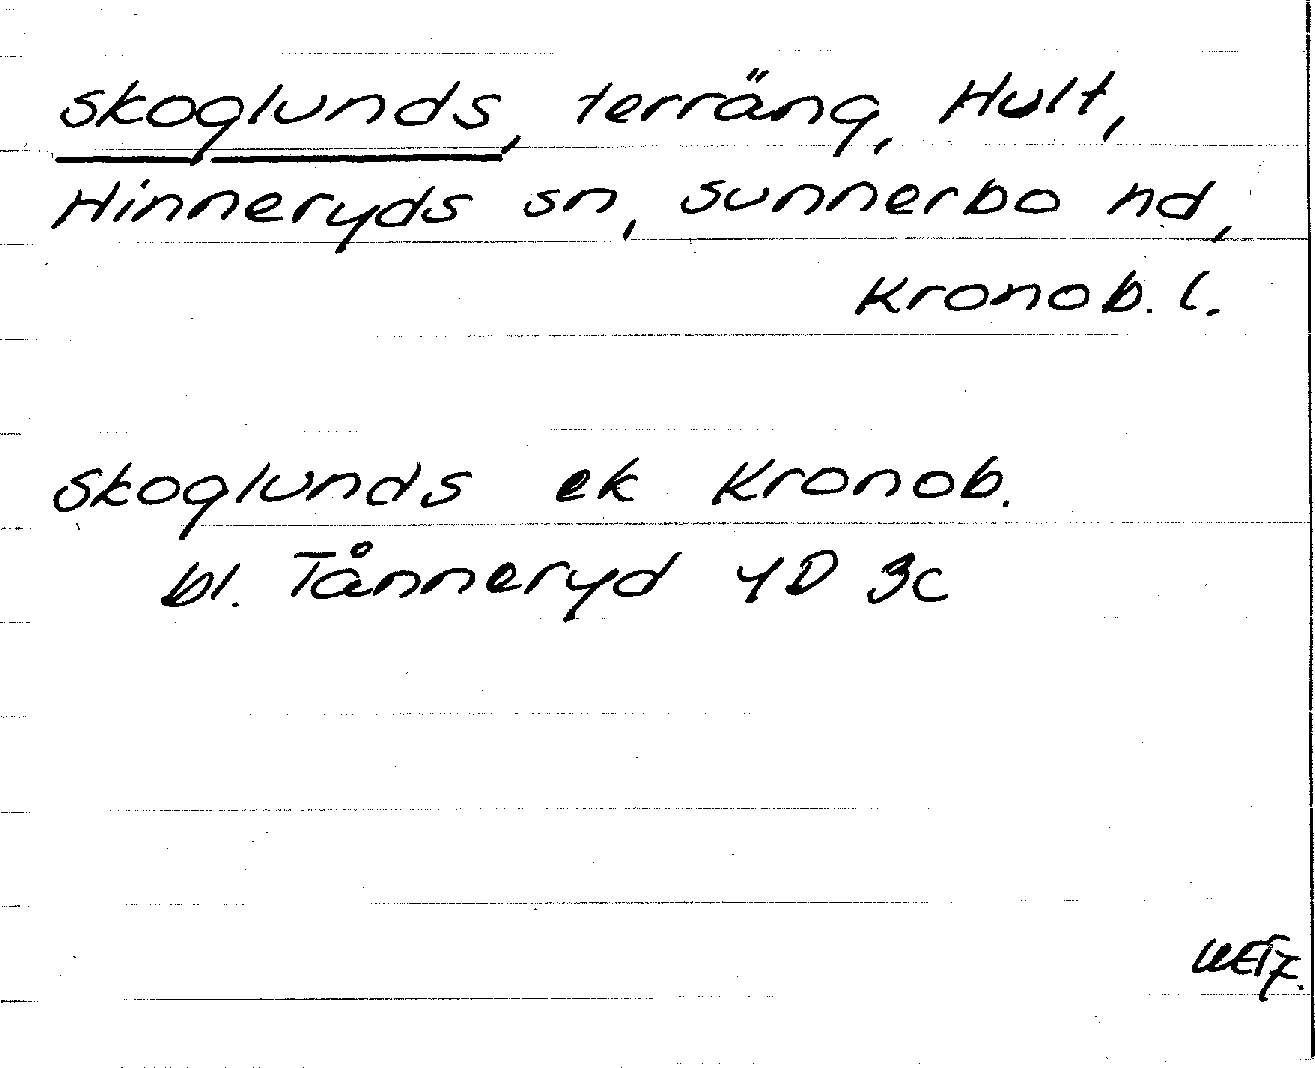 Skoglunds, terräng, Hult,
Hinneryds sn, Sunnerbo hd,
Kronob. l.
Skoglunds ek Kronob.
bl. Tånneryd 4D 3c